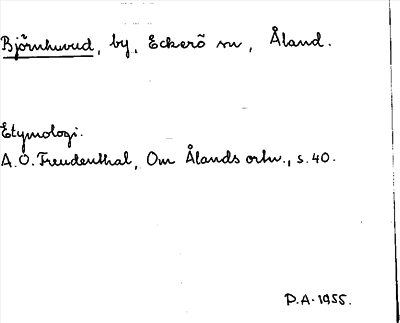 Björnhuvud, by, Eckerö sn, Åland.
Etymologi.
A.O. Freudenthal, Om Ålands ortn., s. 40.
P.A. 1955.